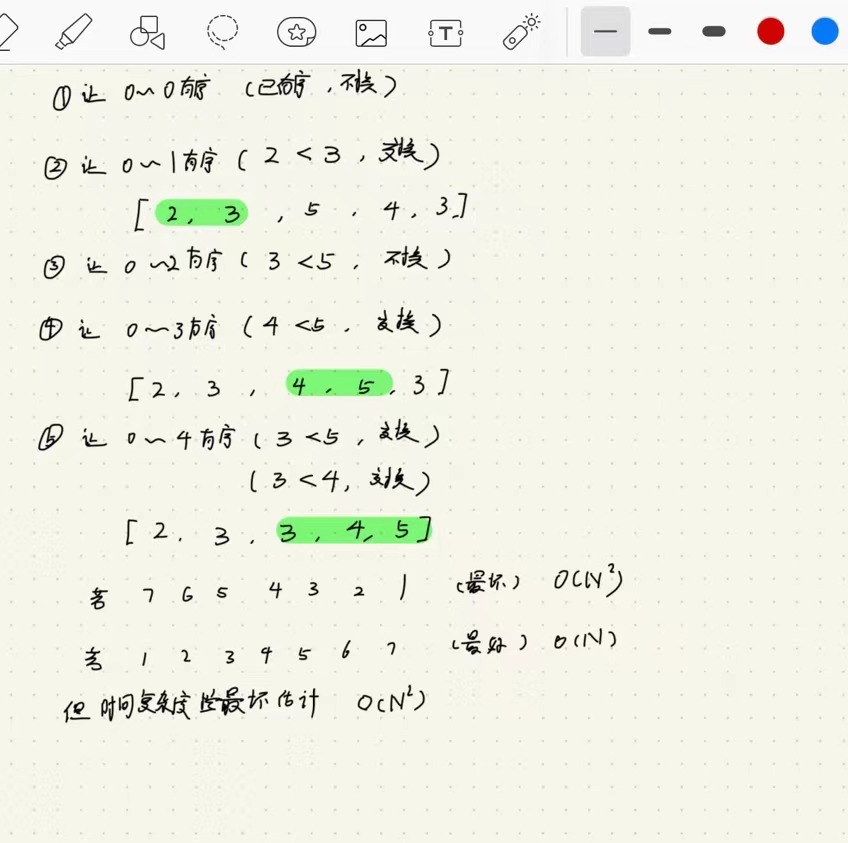 ① 让 0~0有序 (已有序,不换)
② 让 0~1有序 ( 2 < 3 , 交换 )
[ 2, 3 , 5 , 4, 3 ]
③ 让 0~2有序 ( 3 < 5 , 不换 )
④ 让 0~3有序 ( 4 < 5 , 交换 )
[ 2, 3 , 4 , 5 , 3 ]
⑤ 让 0~4有序 ( 3 < 5 , 交换 )
( 3 < 4, 交换 )
[ 2, 3 , 3 , 4, 5 ]
若 7 6 5 4 3 2 1 (最坏) O(N²)
若 1 2 3 4 5 6 7 (最好) O(N)
但 时间复杂度 按最坏估计 O(N²)